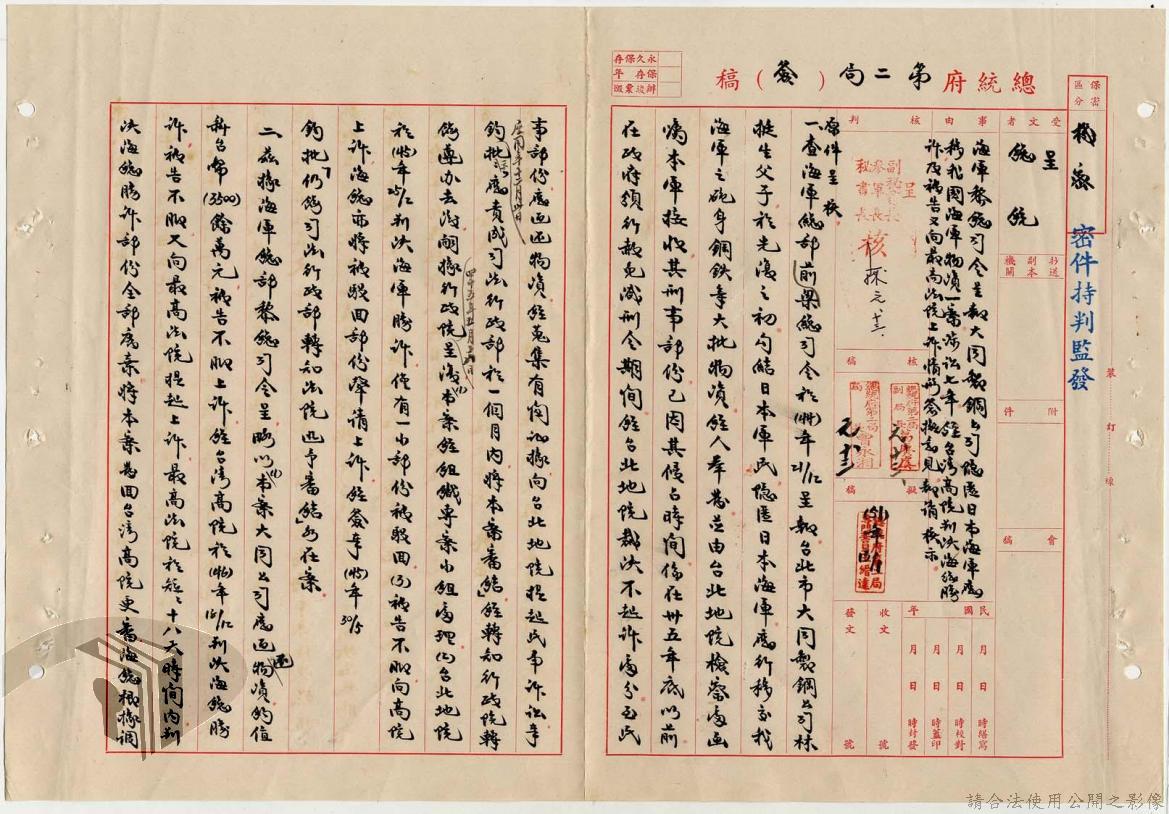 總統府第二局（簽）稿
永久保存
保存年
辦後彙繳
保密區分
機密
密件持判監發
受文者
呈
總統
抄送副本機關
附件
會稿
事由
海軍黎總司令呈報大同製鋼公司隱匿日本海軍應
移我國海軍物資一案涉訟七年經台灣高院判決海總勝
訴及被告又向最高法院上訴情形簽擬意見報請核示
核判
呈
副秘書長
參軍長
秘書長
核
核稿
擬稿
民國年
月日時繕寫
月日時校對
月日時蓋印
月日時封發
收文
發文
號
號
原件呈核
一、查海軍總部前梁總司令於(44)年21/12呈報台北市大同製鋼公司林
挺生父子於光復之初勾結日本軍民隱匿日本海軍應行移交我
海軍之砲身鋼鉄等大批物資經人舉發並由台北地院檢察處函
囑本軍接收其刑事部份已因其侵占時間係在卅五年底以前
在政府頒行赦免減刑令期間經台北地院裁決不起訴處分至民
事部份應返還物資經蒐集有関証據向台北地院提起民事訴訟等
鈞批應責成司法行政部於一個月內將本案審結」經轉知行政院轉
飭遵办去後嗣據行政院呈復(1)本案經組織專案小組處理(2)台北地院
於(45)年25/1判決海軍勝訴僅有一小部份被駁回(3)被告不服向高院
上訴海總亦將被駁回部份聲請上訴經簽奉(45)年30/5
鈞批「仍飭司法行政部轉知法院迅予審結」各在案
二、茲據海軍總部黎總司令呈略以(1)本案大同公司應返還物資約值
新台幣(3500)餘萬元被告不服上訴經台灣高院於(46)年(21)/12判決海總勝
訴被告不服又向最高法院提起上訴最高法院於短短十八天時間內判
決海總勝訴部份全部廢棄將本案發回台灣高院更審海總根據調
請合法使用公開之影像